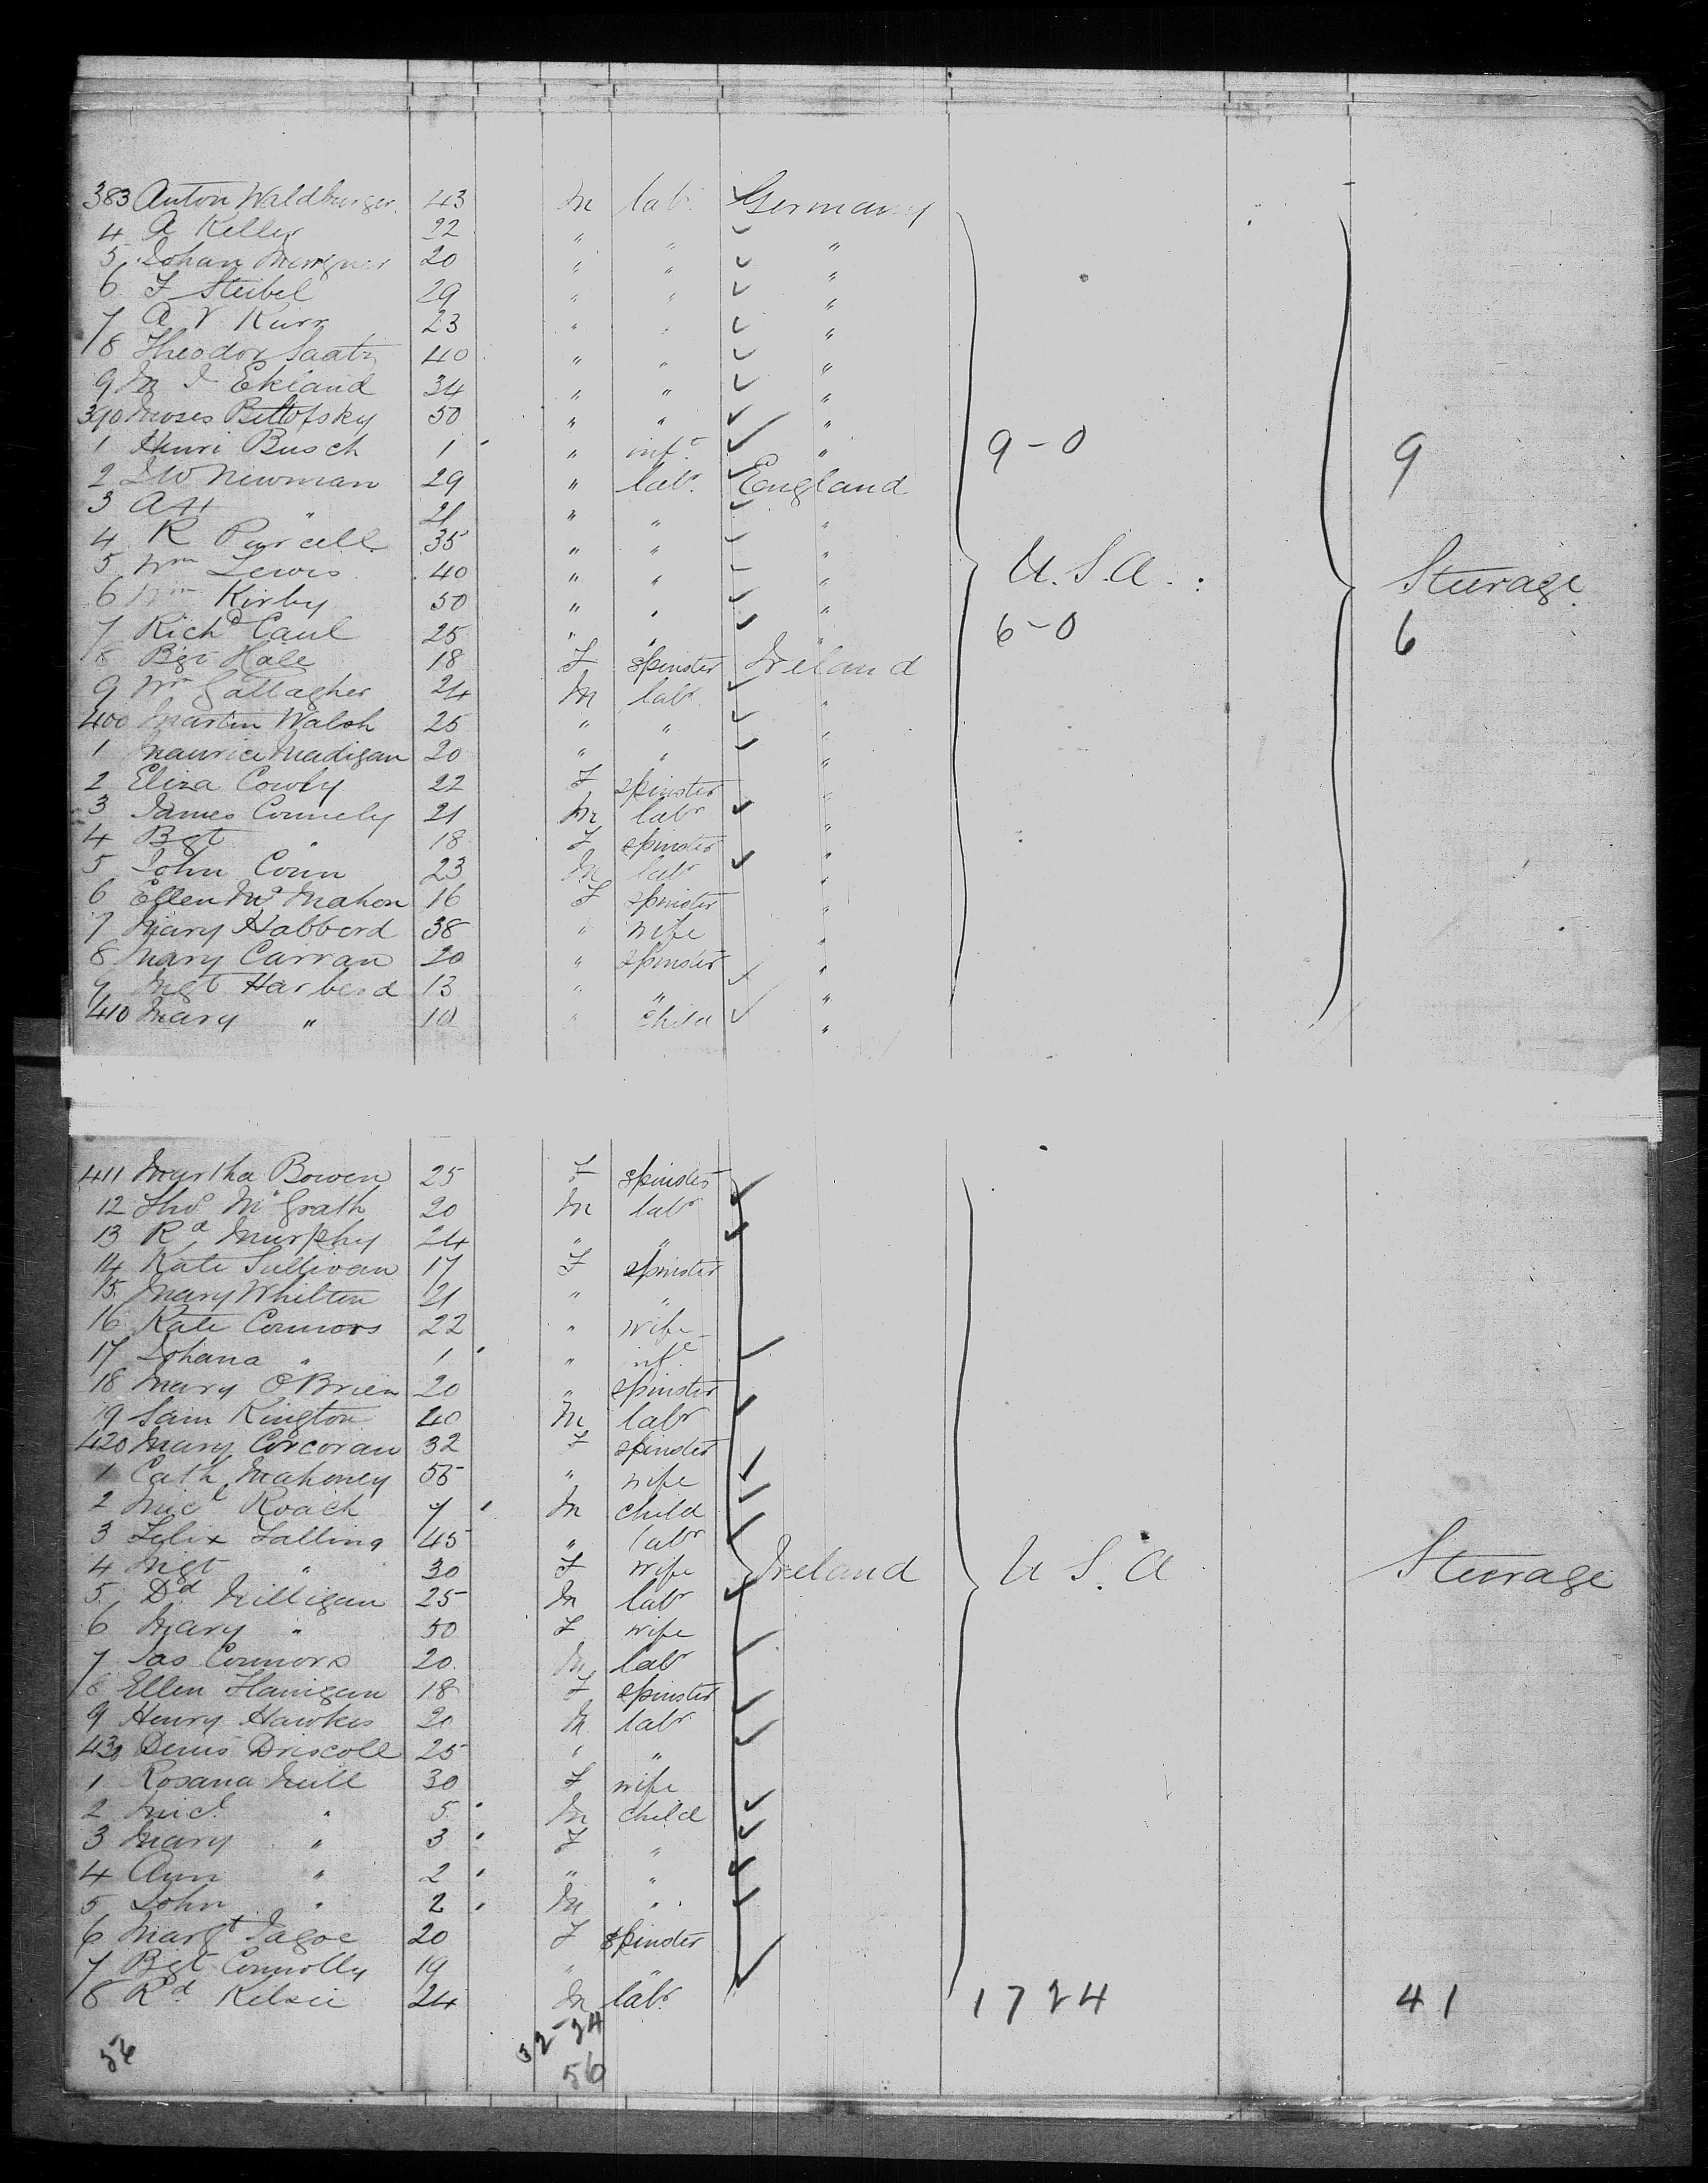 383 Anton Waldburger 43 M labr Germany
4 A Keller 22 " " "
5 Johan 20 " " "
6 F Steibel 29 " " "
7 A V Kurr 23 " " "
8 Theodor Saatz 40 " " "
9 M J Ekland 34 " " "
390 Moses Bettofsky 50 " " "
1 Henri Busch 1 " inft " 9-0 9
2 J W Newman 29 " labr England
3 AH " 21 " " "
4 R Purcell 35 " " "
5 Wm Lewis 40 " " " U.S.A. Steerage
6 Wm Kirby 50 " " "
7 Richd Caul 25 " " " 6-0 6
8 Bgt Hale 18 F spinster Ireland
9 Wm Gallagher 24 M labr "
400 Martin Walsh 25 " " "
1 Maurice Madigan 20 " " "
2 Eliza Cowly 22 F spinster "
3 James Connely 21 M labr "
4 Bgt " 18 F spinster "
5 John Conn 23 M labr "
6 Ellen Mc Mahon 16 F spinster "
7 Mary Habberd 38 " wife "
8 Mary Carran 20 " spinster "
9 Mgt Harberd 13 " " "
410 Mary " 10 " child "
411 Martha Bowen 25 F spinster
12 Thos McGrath 20 M labr
13 Rd Murphy 24 " "
14 Kate Sullivan 17 F spinster
15 Mary Whilton 21 " "
16 Kate Connors 22 " wife
17 Johana " 1 " inft
18 Mary O'Brien 20 " spinster
19 Sam Kington 40 M labr
420 Mary Corcoran 32 F spinster
1 Cath Mahoney 55 " wife
2 Micl Roach 7 M child
3 Felix Falling 45 " labr
4 Mgt " 30 F wife Ireland U S. A Steerage
5 Dd Milligan 25 M labr
6 Mary " 50 F wife
7 Jas Connors 20 M labr
8 Ellen Flanigan 18 F spinster
9 Henry Hawkes 20 M labr
430 Denis Driscoll 25 " "
1 Rosana Neill 30 F wife
2 Micl " 5 M child
3 Mary " 3 F "
4 Ann " 2 " "
5 John " 2 M "
6 Margt Jagoe 20 F spinster
7 Bgt Connolly 19 " "
8 Rd Kelsie 24 M labr 1724 41
56 32-24
56